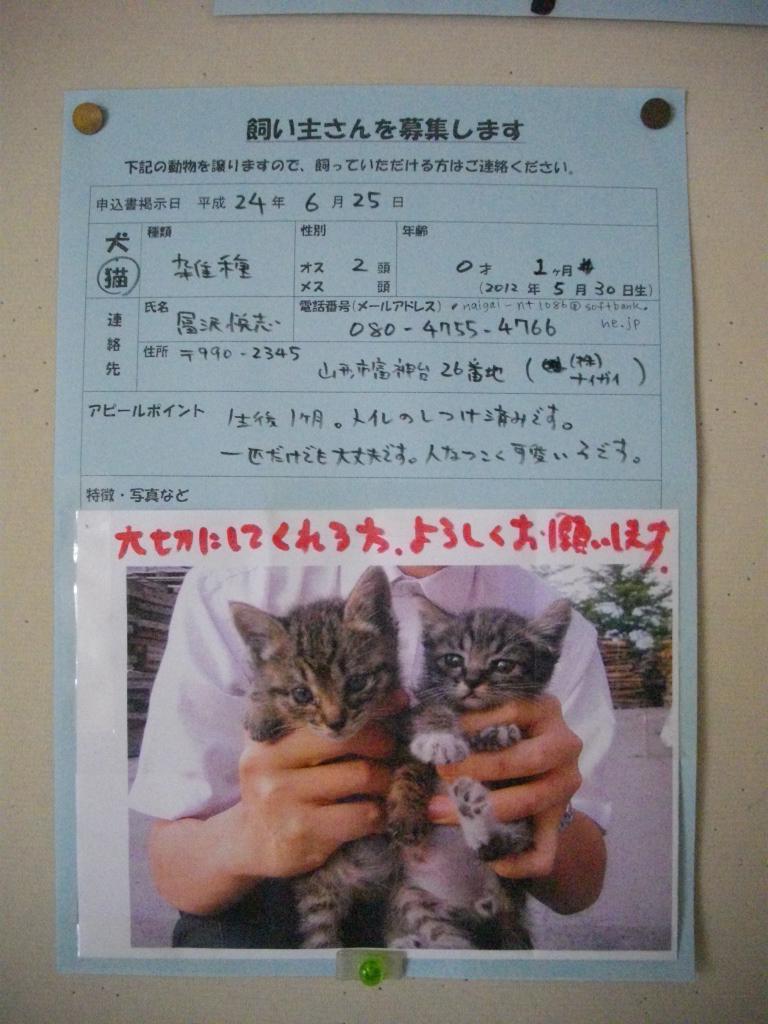 飼い主さんを募集します
下記の動物を譲りますので、飼っていただける方はご連絡ください。
申込書掲示日 平成 24 年 6 月 25 日
犬 猫 種類 雑種 性別 オス 2 頭 メス 頭 年齢 0 才 1 ヶ月
(2012 年 5 月 30 日生)
連絡先 氏名 冨沢悦志 電話番号(メールアドレス) naigai-nt1086@softbank.ne.jp
080-4755-4766
住所 〒990-2345 山形市富神台 26番地 ((株)ナイガイ)
アピールポイント 生後1ヶ月。トイレのしつけ済みです。
一匹だけでも大丈夫です。人なつこく可愛い子です。
特徴・写真など
大切にしてくれる方、よろしくお願いします。